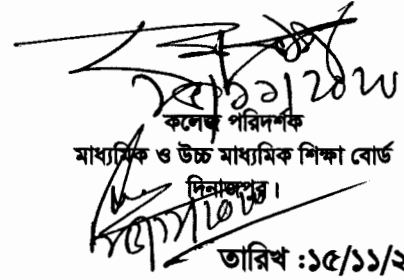 ১৫/১১/২০২০
কলেজ পরিদর্শক
মাধ্যমিক ও উচ্চ মাধ্যমিক শিক্ষা বোর্ড
দিনাজপুর।
তারিখ :১৫/১১/২